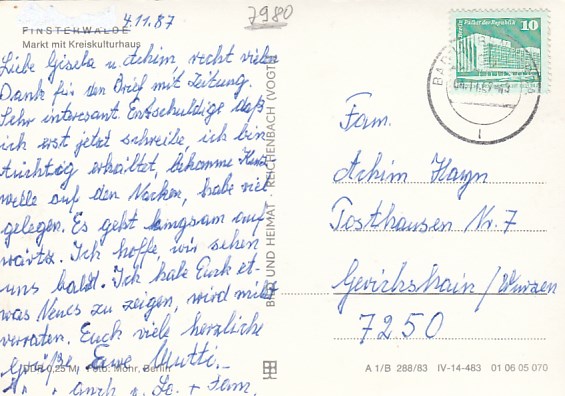 4.11.87
7980
FINSTERWALDE
Markt mit Kreiskulturhaus
Liebe Gisela u Achim, recht vielen
Dank für den Brief mit Zeitung.
Sehr interesant. Entschuldige daß
ich erst jetzt schreibe, ich bin
tüchtig erkältet, bekomme Kurz
welle auf den Nacken, habe viel
gelegen. Es geht langsam auf
wärts. Ich hoffe, wir sehen
uns bald. Ich habe Euch et-
was Neues zu zeigen, wird nicht
verraten. Euch viele herzliche
Grüße Eure Mutti.
auch + Fam.
DDR 0,25 M Foto: Mohr, Berlin
BILD UND HEIMAT · REICHENBACH (VOGTL)
10
Berlin, Palast der Republik
DDR
Fam.
Achim Hayn
Posthausen Nr. 7
Gerichshain / Wurzen
7250
A 1/B 288/83 IV-14-483 01 06 05 070